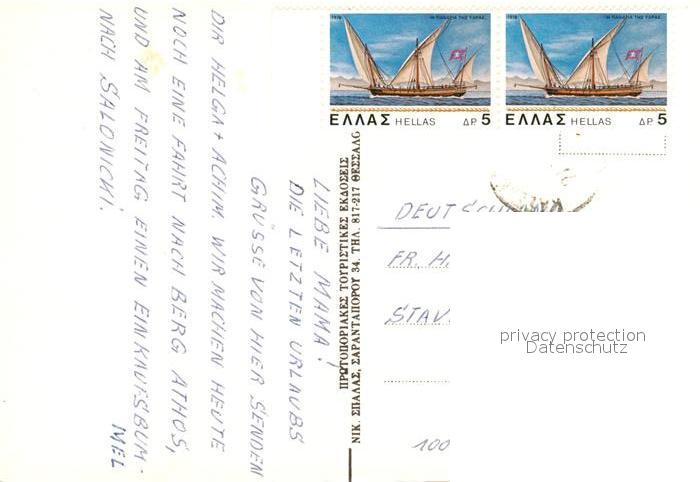 LIEBE MAMA!
DIE LETZTEN URLAUBS
GRÜSSE VON HIER SENDEN
DIR HELGA + ACHIM. WIR MACHEN HEUTE
NOCH EINE FAHRT NACH BERG ATHOS,
UND AM FREITAG EINEN EINKAUFSBUM-
MEL
NACH SALONICKI.
ΠΡΩΤΟΠΟΡΙΑΚΕΣ ΤΟΥΡΙΣΤΙΚΕΣ ΕΚΔΟΣΕΙΣ
ΝΙΚ. ΣΠΑΛΑΣ, ΣΑΡΑΝΤΑΠΟΡΟΥ 34, ΤΗΛ. 817-217 ΘΕΣΣΑΛΟ
1978 "Η ΠΑΝΑΓΙΑ ΤΗΣ ΥΔΡΑΣ"
ΕΛΛΑΣ HELLAS ΔΡ. 5
1978 "Η ΠΑΝΑΓΙΑ ΤΗΣ ΥΔΡΑΣ"
ΕΛΛΑΣ HELLAS ΔΡ. 5
DEUTSCHLAND
FR. H.
STAV.
100
privacy protection
Datenschutz